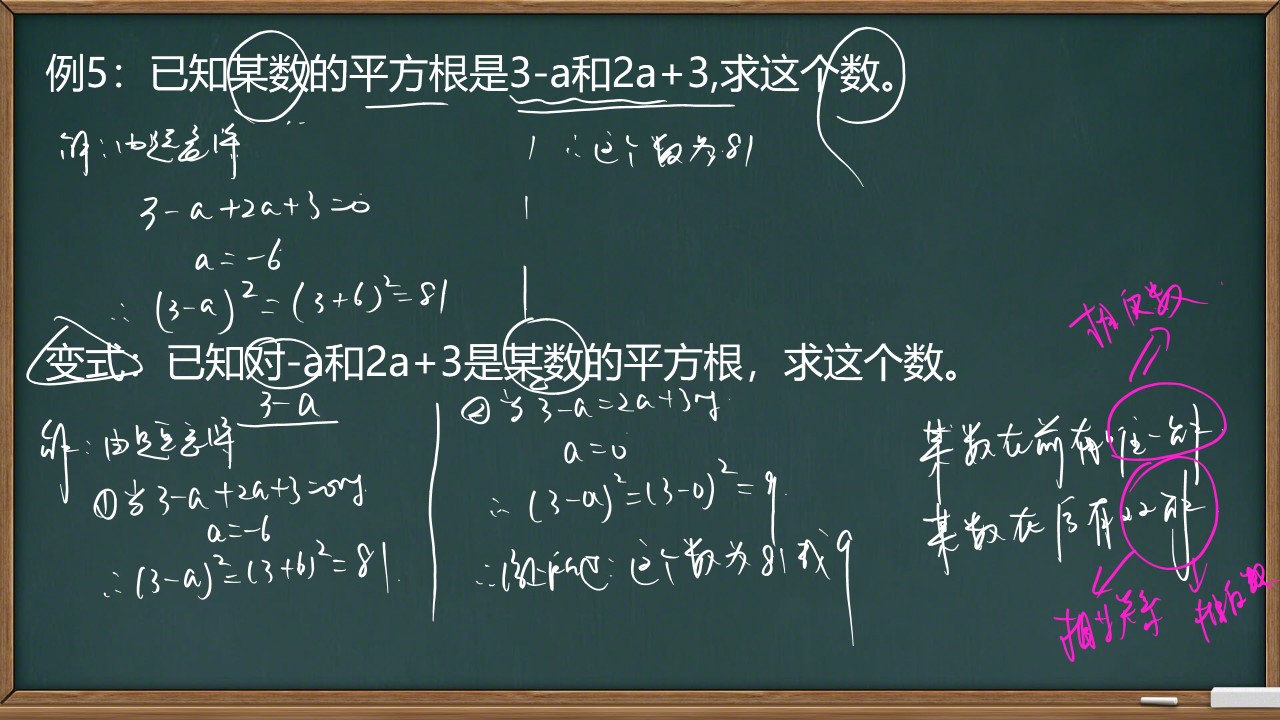 例5：已知某数的平方根是3-a和2a+3,求这个数。
解：由题意得
3-a+2a+3=0
a=-6
∴(3-a)²=(3+6)²=81
∴这个数为81
变式：已知对-a和2a+3是某数的平方根，求这个数。
3-a
解：由题意得
①当3-a+2a+3=0时
a=-6
∴(3-a)²=(3+6)²=81.
②当3-a=2a+3时
a=0
∴(3-a)²=(3-0)²=9.
∴综上所述：这个数为81或9
相反数
某数在前有1住一解
某数在后有22解
相等关系
相反数